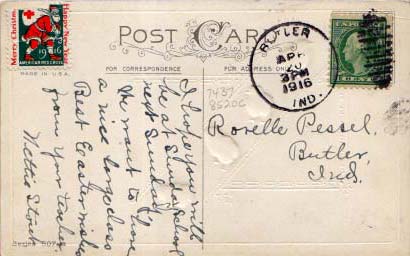 POST CARD
Merry Christmas
Happy New Year
1916
AMERICAN RED CROSS
MADE IN U.S.A.
FOR CORRESPONDENCE
FOR ADDRESS ONLY
BUTLER
APR
20
3 PM
1916
IND.
CENT
7437
8520C
I hope you will
be at Sunday School
next Sunday.
We want to have
a nice large class
Best Easter wishes
from your teacher.
Nettie
Roselle Pessel,
Butler,
Ind.
Series